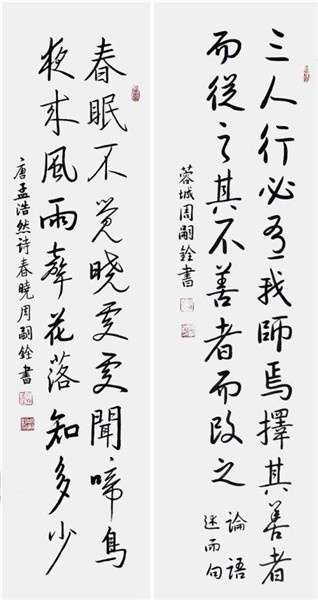 三人行必有我師焉擇其善者
而從之其不善者而改之
論語
述而句
蓉城周嗣銓書
春眠不覺曉處處聞啼鳥
夜来風雨聲花落知多少
唐孟浩然诗春曉周嗣銓書